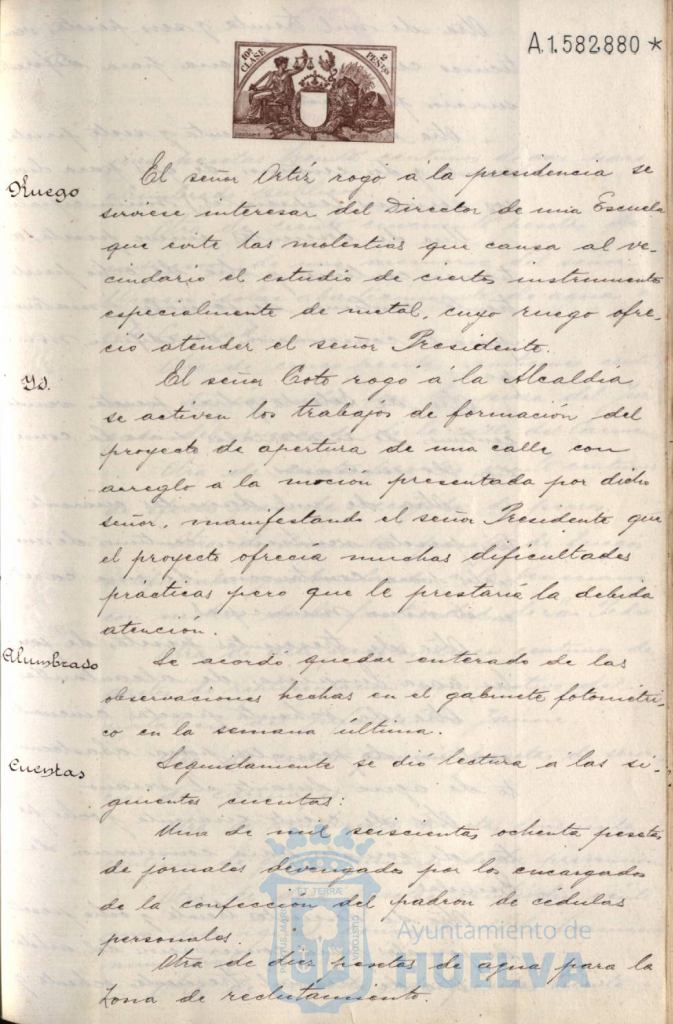 A.1.582.880 *
10ª CLASE
2 PESETAS
Ruego
El señor Ortíz rogó á la presidencia se
sirviese interesar del Director de una Escuela
que evite las molestias que causa al ve-
cindario el estudio de ciertos instrumentos
especialmente de metal, cuyo ruego ofre-
ció atender el señor Presidente.
Yd.
El señor Coto rogó á la Alcaldía
se activen los trabajos de formación del
proyecto de apertura de una calle con
arreglo á la moción presentada por dicho
señor, manifestando el señor Presidente que
el proyecto ofrecía muchas dificultades
prácticas pero que le prestaría la debida
atención.
Alumbrado
Se acordó quedar enterado de las
observaciones hechas en el gabinete fotométri-
co en la semana última.
Cuentas
Seguidamente se dió lectura á las si-
guientes cuentas:
Una de mil seiscientas ochenta pesetas
de jornales devengados por los encargados
de la confección del padron de cédulas
personales.
Otra de diez pesetas de agua para la
Zona de reclutamiento.
PORTUS MARIS
ET TERRÆ
CUSTODIA
Ayuntamiento de
HUELVA